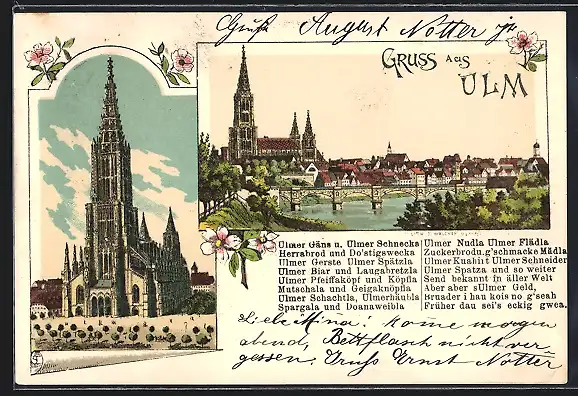 Gruß August Notter jr
GRUSS AUS
ULM
Ulmer Gäns u. Ulmer Schnecka
Herrabrod und Do'stigswecka
Ulmer Gerste Ulmer Spätzla
Ulmer Biar und Laugabretzla
Ulmer Pfeiffaköpf und Köpfla
Mutschala und Geigaknöpfla
Ulmer Schachtla, Ulmerhäubla
Spargala und Doanaweibla
Ulmer Nudla Ulmer Flädla
Zuckerbrodu.g'schmacke Mädla
Ulmer Kuahirt Ulmer Schneider
Ulmer Spatza und so weiter
Send bekannt in äller Welt
Aber aber sUlmer Geld,
Bruader i hau kois no g'seah
Früher dau sei's eckig gwea.
Liebe Mina! kome morgen
abend, Bettflasch nicht ver
gessen. Gruß Ernst Notter